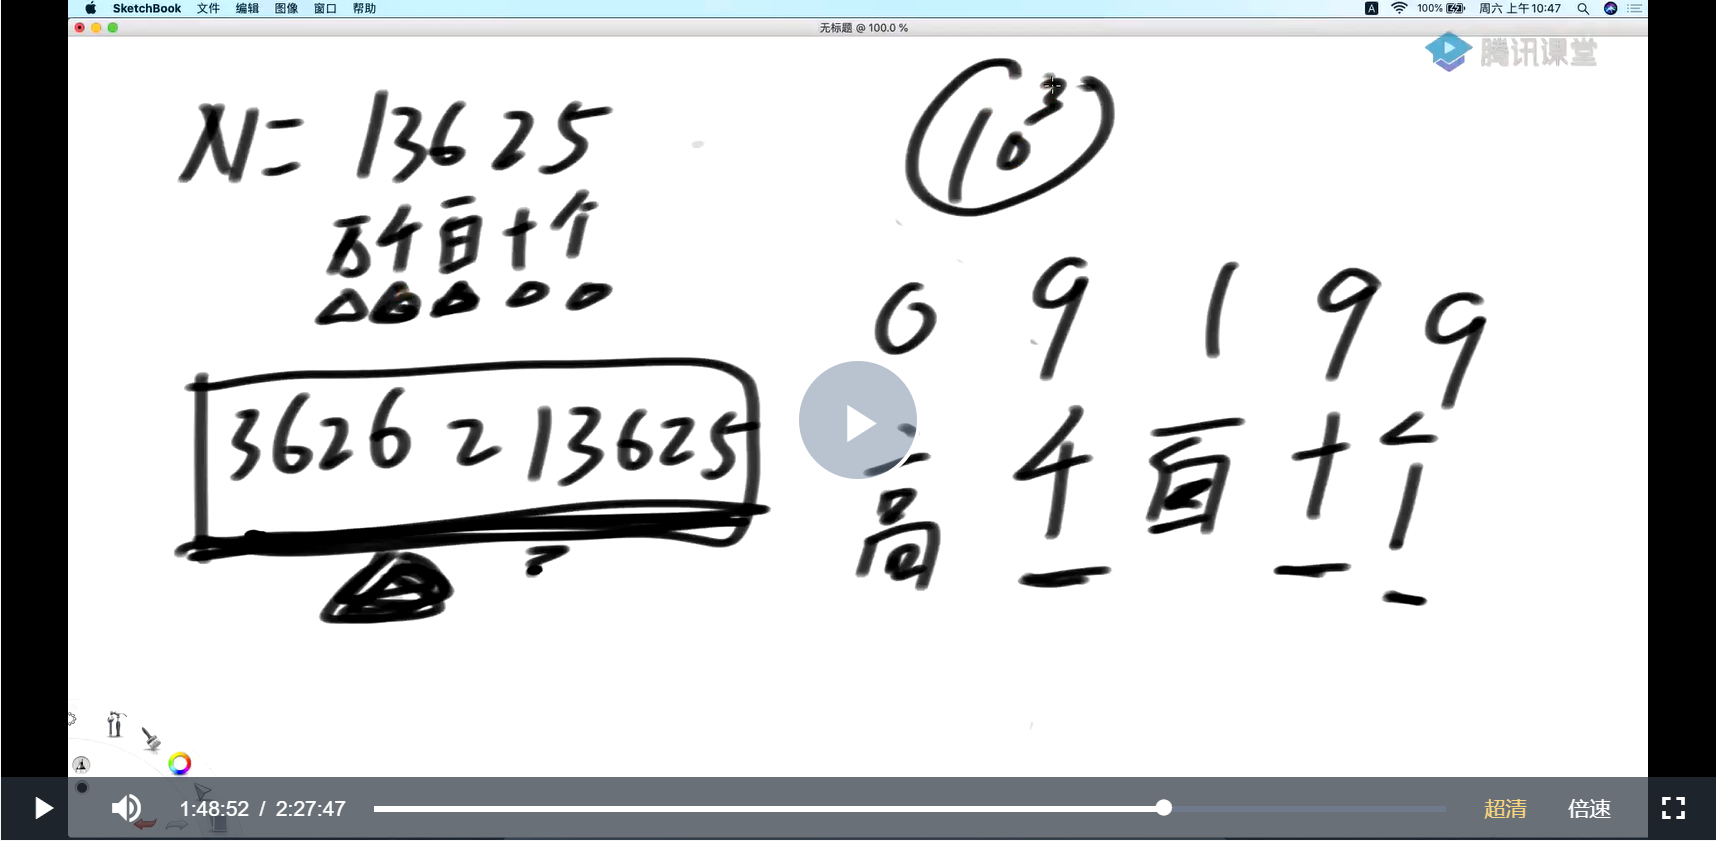 SketchBook 文件 编辑 图像 窗口 帮助 A 100% 周六 上午10:47
无标题 @ 100.0 %
腾讯课堂
N= 13625
万千百十个
3626 2 13625
10³
0 9 1 9 9
高 千 百 十 个
1:48:52 / 2:27:47 超清 倍速